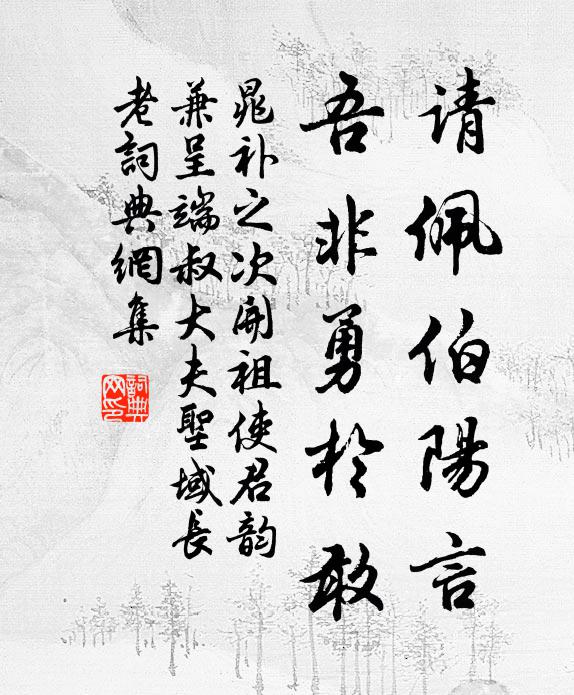 请佩伯陽言
吾非勇於敢
晁补之次開祖使君韵
兼呈端叔大夫聖域長
老詞典網集
詞典網印